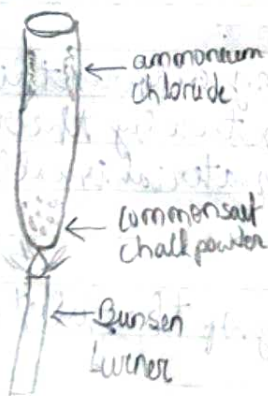 ammonium
chloride
common salt
chalk powder
Bunsen
burner